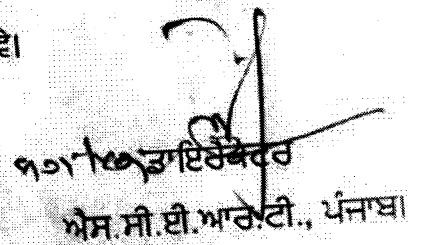 ਵੇ।
ਡਾਇਰੈਕਟਰ
ਐਸ.ਸੀ.ਈ.ਆਰ.ਟੀ., ਪੰਜਾਬ।